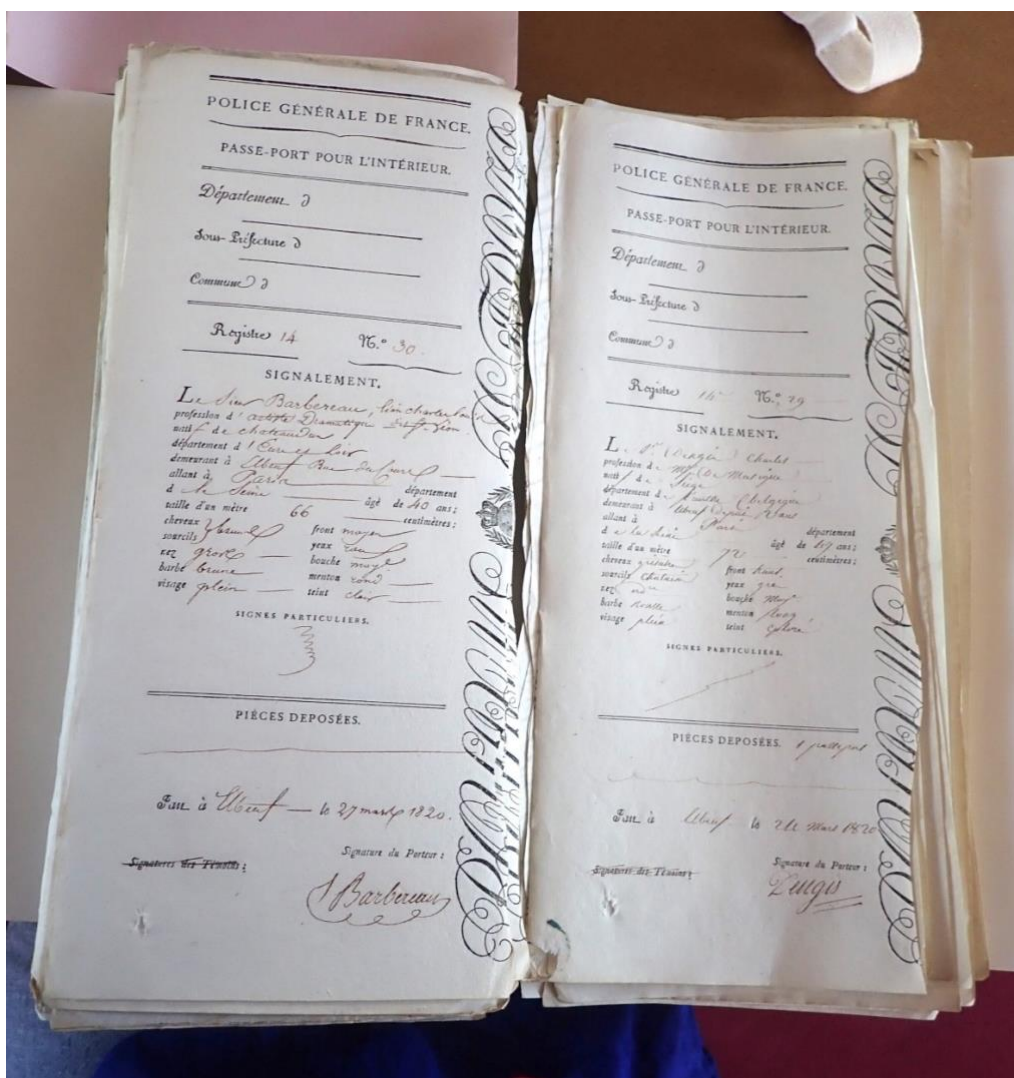 POLICE GÉNÉRALE DE FRANCE.
PASSE-PORT POUR L'INTÉRIEUR.
Département d
Sous-Préfecture d
Commune d
Registre 14 N.º 30.
SIGNALEMENT.
Le Sieur Barbereau,
profession d'artiste Dramatique
natif de chateaudun
département d'Eure et Loir
demeurant à Elbeuf Rue
allant à Paris département
d e la Seine âgé de 40 ans;
taille d'un mètre 66 centimètres;
cheveux brun front moyen
sourcils yeux
nez gros bouche moye
barbe brune menton rond
visage plein teint clair
SIGNES PARTICULIERS.
PIÈCES DEPOSÉES.
Fait à Elbeuf le 27 mars 1820.
Signatures des Témoins:
Signature du Porteur:
Barbereau
POLICE GÉNÉRALE DE FRANCE.
PASSE-PORT POUR L'INTÉRIEUR.
Département d
Sous-Préfecture d
Commune d
Registre 14 N.º 29
SIGNALEMENT.
Le Sr. Charles
profession de Md de Musique
natif de Liège
département de
demeurant à Elbeuf depuis 2 ans
allant à Paris département
d e la Seine âgé de ans;
taille d'un mètre 72 centimètres;
cheveux front haut
sourcils chatain yeux gris
nez bouche moy
barbe menton long
visage plein teint coloré
SIGNES PARTICULIERS.
PIÈCES DEPOSÉES. 1 passeport
Fait à Elbeuf le Mars 1820
Signatures des Témoins:
Signature du Porteur: